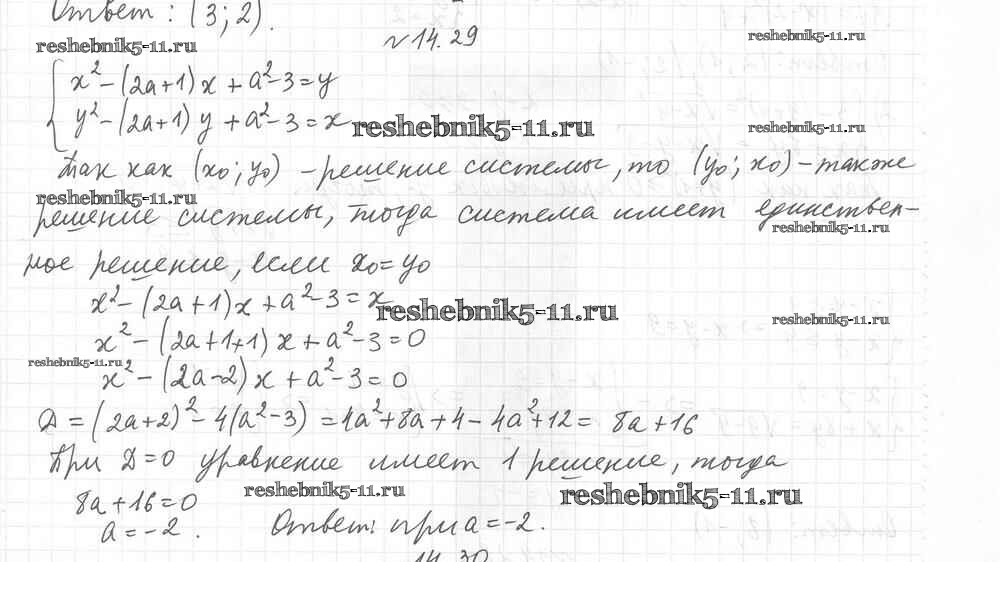 Ответ: (3; 2).
reshebnik5-11.ru
№14.29
reshebnik5-11.ru
x² - (2a+1)x + a² - 3 = y
y² - (2a+1)y + a² - 3 = x
reshebnik5-11.ru
reshebnik5-11.ru
Так как (x₀; y₀) - решение системы, то (y₀; x₀) - также
reshebnik5-11.ru
решение системы, тогда система имеет единствен-
reshebnik5-11.ru
ное решение, если x₀ = y₀
x² - (2a+1)x + a² - 3 = x
reshebnik5-11.ru
reshebnik5-11.ru
x² - (2a+1+1)x + a² - 3 = 0
reshebnik5-11.ru
x² - (2a-2)x + a² - 3 = 0
D = (2a+2)² - 4(a² - 3) = 4a² + 8a + 4 - 4a² + 12 = 8a + 16
При D = 0 уравнение имеет 1 решение, тогда
reshebnik5-11.ru
reshebnik5-11.ru
8a + 16 = 0
a = -2.
Ответ: при a = -2.
14.30